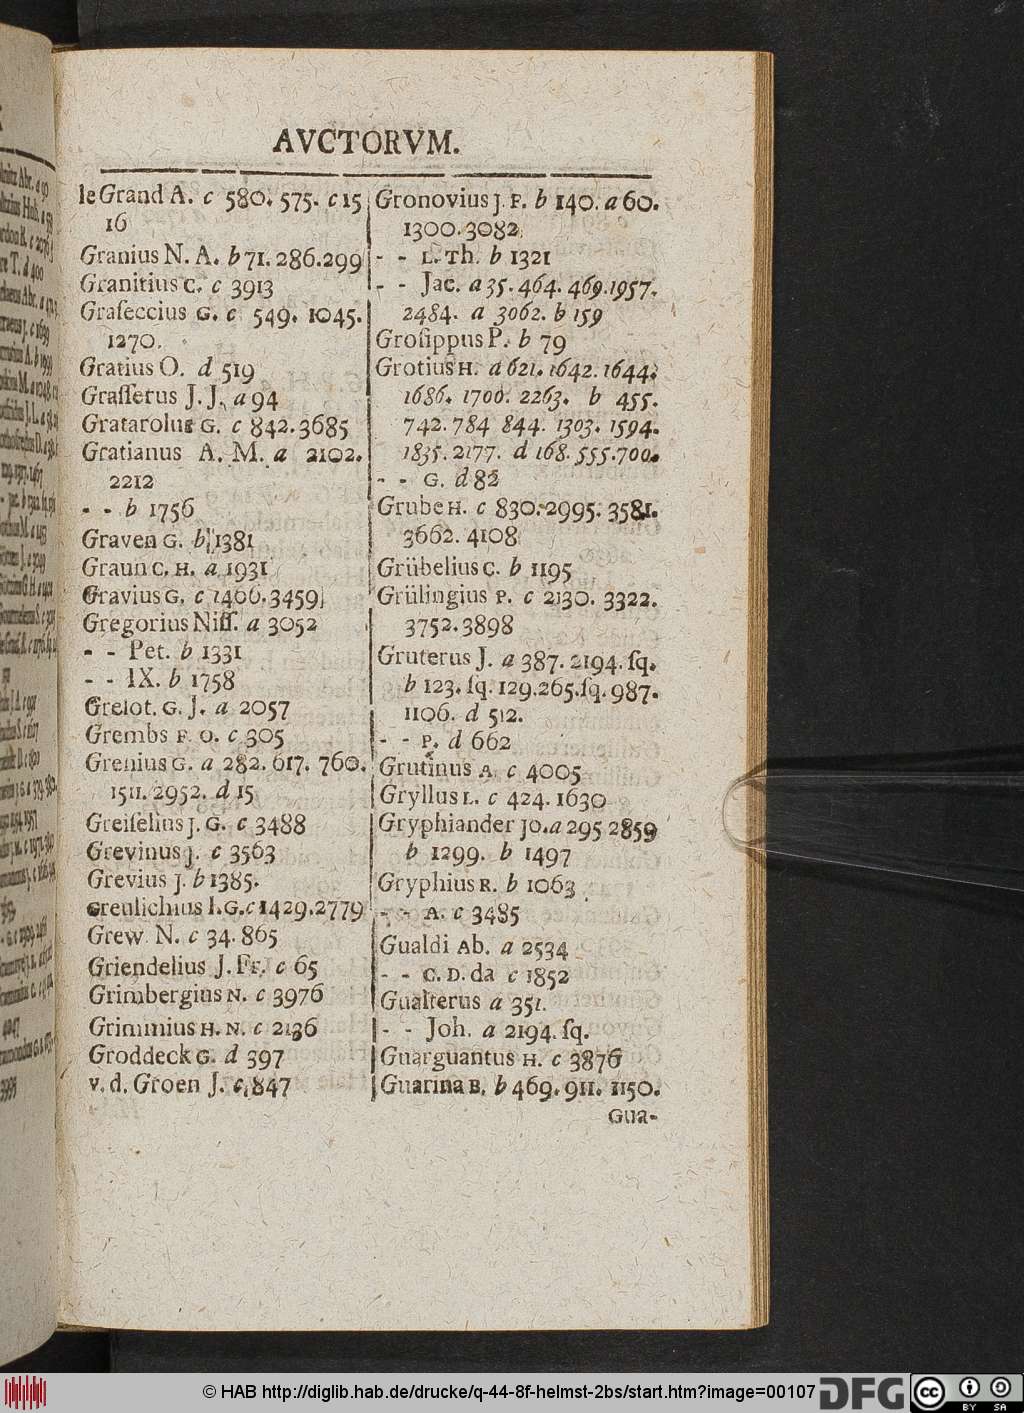 AVCTORVM.
le Grand A. c 580. 575. c 15
16
Granius N. A. b 71. 286. 299
Granitius C. c 3913
Graſeccius G. c 549. 1045.
1270.
Gratius O. d 519
Graſſerus J. J. a 94
Gratarolus G. c 842. 3685
Gratianus A. M. a 2102.
2212
- - b 1756
Graven G. b 1381
Graun C. H. a 1931
Gravius G. c 1466. 3459
Gregorius Niſſ. a 3052
- - Pet. b 1331
- - IX. b 1758
Grelot. G. J. a 2057
Grembs F. O. c 305
Grenius G. a 282. 617. 760.
1511. 2952. d 15
Greiſelius J. G. c 3488
Grevinus J. c 3563
Grevius J. b 1385.
Greulichius I. G. c 1429. 2779
Grew N. c 34. 865
Griendelius J. Fr. c 65
Grimbergius N. c 3976
Grimmius H. N. c 2136
Groddeck G. d 397
v. d. Groen J. c 847
Gronovius J. F. b 140. a 60.
1300. 3082
- - L. Th. b 1321
- - Jac. a 35. 464. 469. 1957.
2484. a 3062. b 159
Groſippus P. b 79
Grotius H. a 621. 1642. 1644.
1686. 1700. 2263. b 455.
742. 784 844. 1303. 1594.
1835. 2177. d 168. 555. 700.
- - G. d 82
Grube H. c 830. 2995. 3581.
3662. 4108
Grübelius C. b 1195
Grülingius P. c 2130. 3322.
3752. 3898
Gruterus J. a 387. 2194. ſq.
b 123. ſq. 129. 265. ſq. 987.
1106. d 512.
- - P. d 662
Grutinus A. c 4005
Gryllus L. c 424. 1630
Gryphiander Jo. a 295 2859
b 1299. b 1497
Gryphius R. b 1063
- - A. c 3485
Gualdi Ab. a 2534
- - C. D. da c 1852
Gualterus a 351.
- - Joh. a 2194. ſq.
Guarguantus H. c 3876
Guarina B. b 469. 911. 1150.
Gua-
© HAB http://diglib.hab.de/drucke/q-44-8f-helmst-2bs/start.htm?image=00107
DFG
cc
BY SA